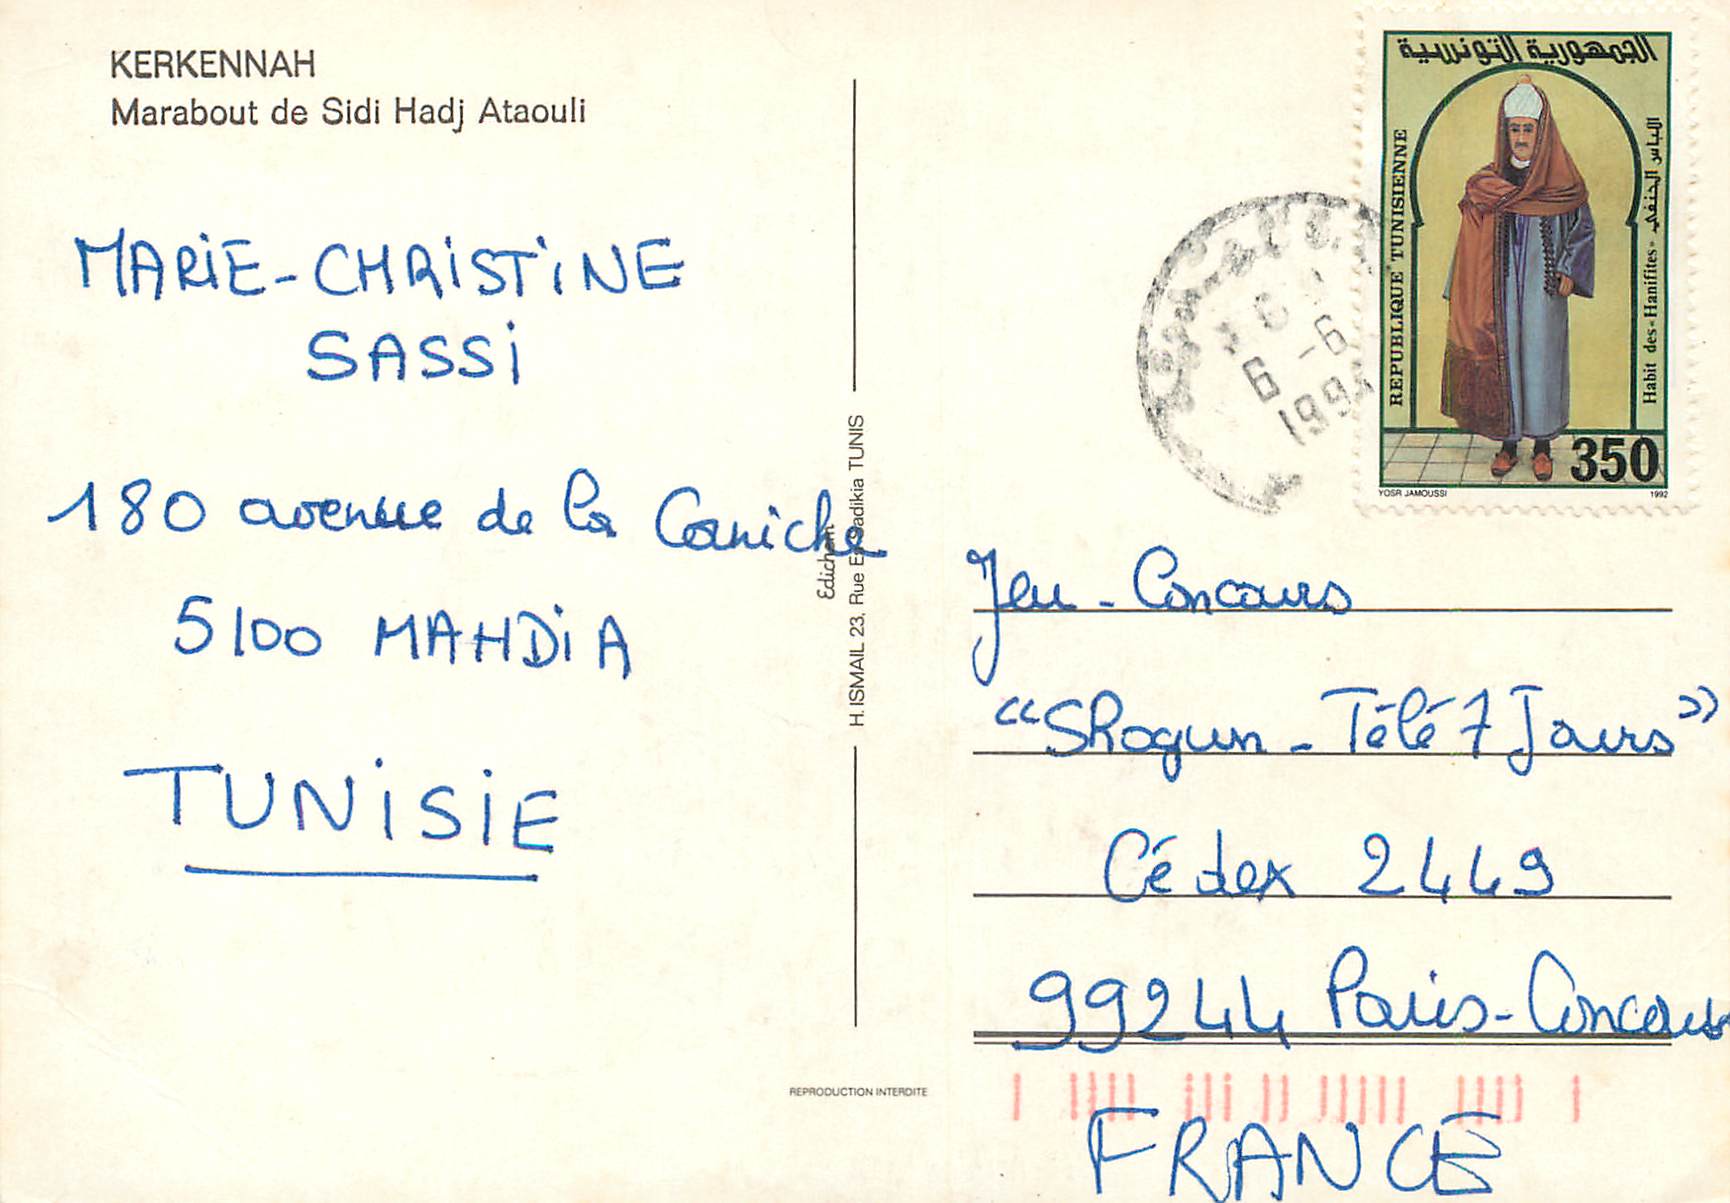 KERKENNAH
Marabout de Sidi Hadj Ataouli
MARiE-CHRiSTiNE
SASSi
180 avenue de la Corniche
5100 MAHDiA
TUNiSiE
Edichem
H. ISMAIL 23, Rue Es-Sadikia TUNIS
REPRODUCTION INTERDITE
الجمهورية التونسية
REPUBLIQUE TUNISIENNE
اللباس الحنفي
Habit des «Hanifites»
350
YOSR JAMOUSSI
1992
6 -6
1994
Jeu - Concours
"Shogun - Télé 7 Jours"
Cédex 2449
99244 Paris-Concours
FRANCE